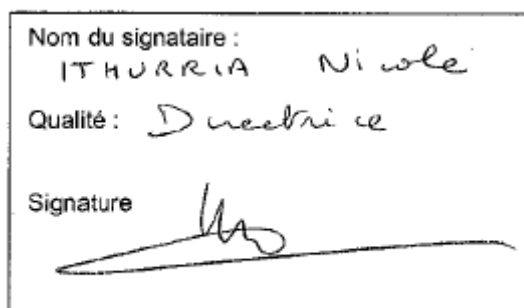 Nom du signataire :
ITHURRIA Nicole
Qualité : Directrice
Signature